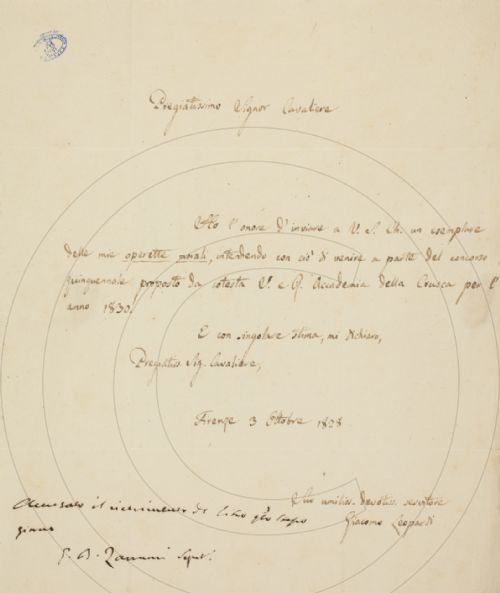 Pregiatissimo Signor Cavaliere
Ho l'onore d'inviare a V. S. Ch. un esemplare
delle mie operette morali, intendendo con ciò di venire a parte del concorso
quinquennale proposto da cotesta I. e R. Accademia della Crusca per l'
anno 1830.
E con singolare stima, mi dichiaro,
Pregiatiss. Sig. Cavaliere,
Firenze 3 Ottobre 1828
Suo umiliss. devotiss. servitore
Giacomo Leopardi
Accusato il ricevimento di
G. B. Zannoni Segret.